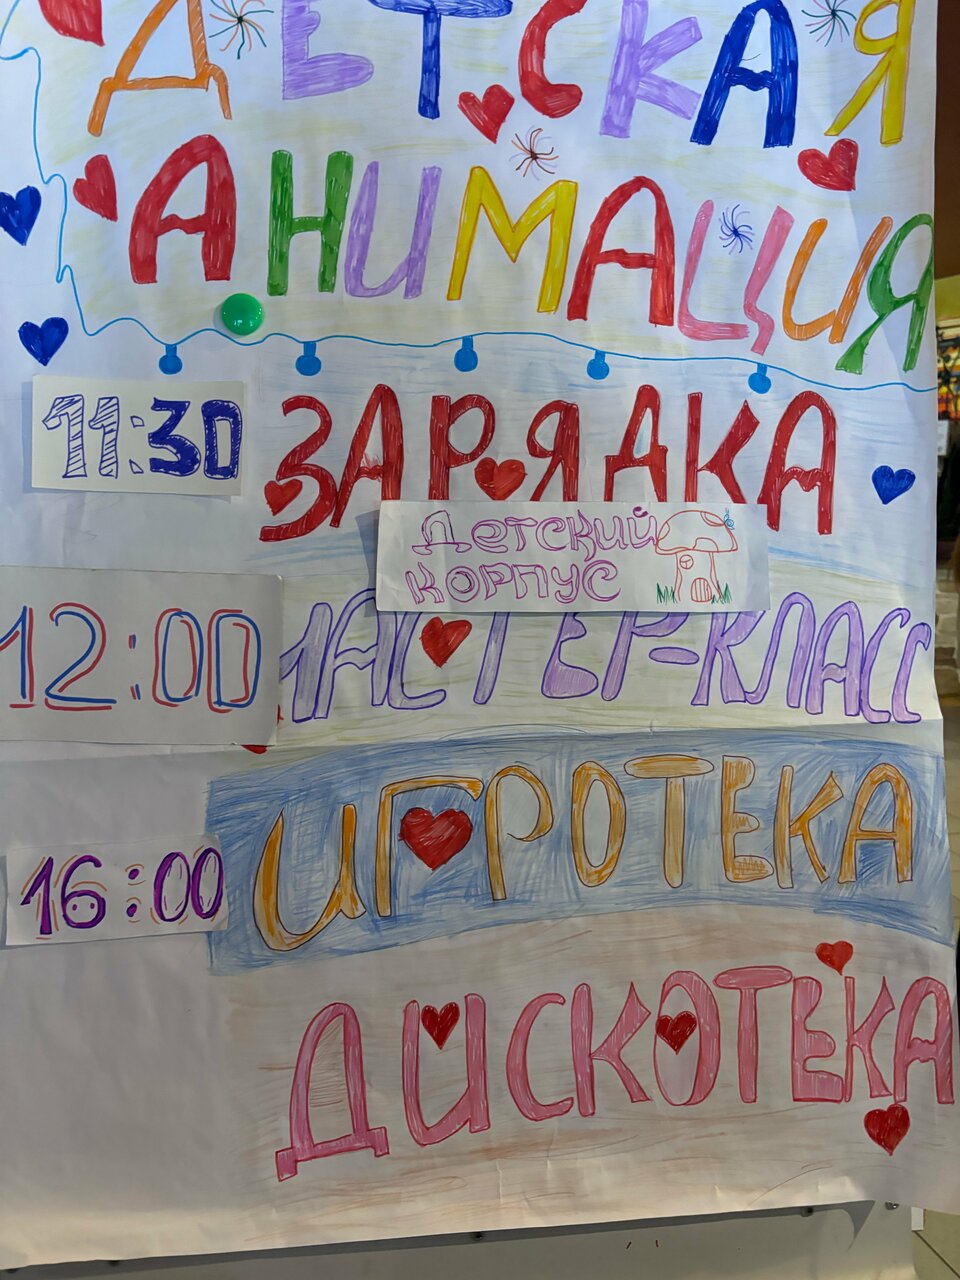 ДЕТСКАЯ
АНИМАЦИЯ
11:30 ЗАРЯДКА
Детский
корпус
12:00 МАСТЕР-КЛАСС
ИГРОТЕКА
16:00
ДИСКОТЕКА